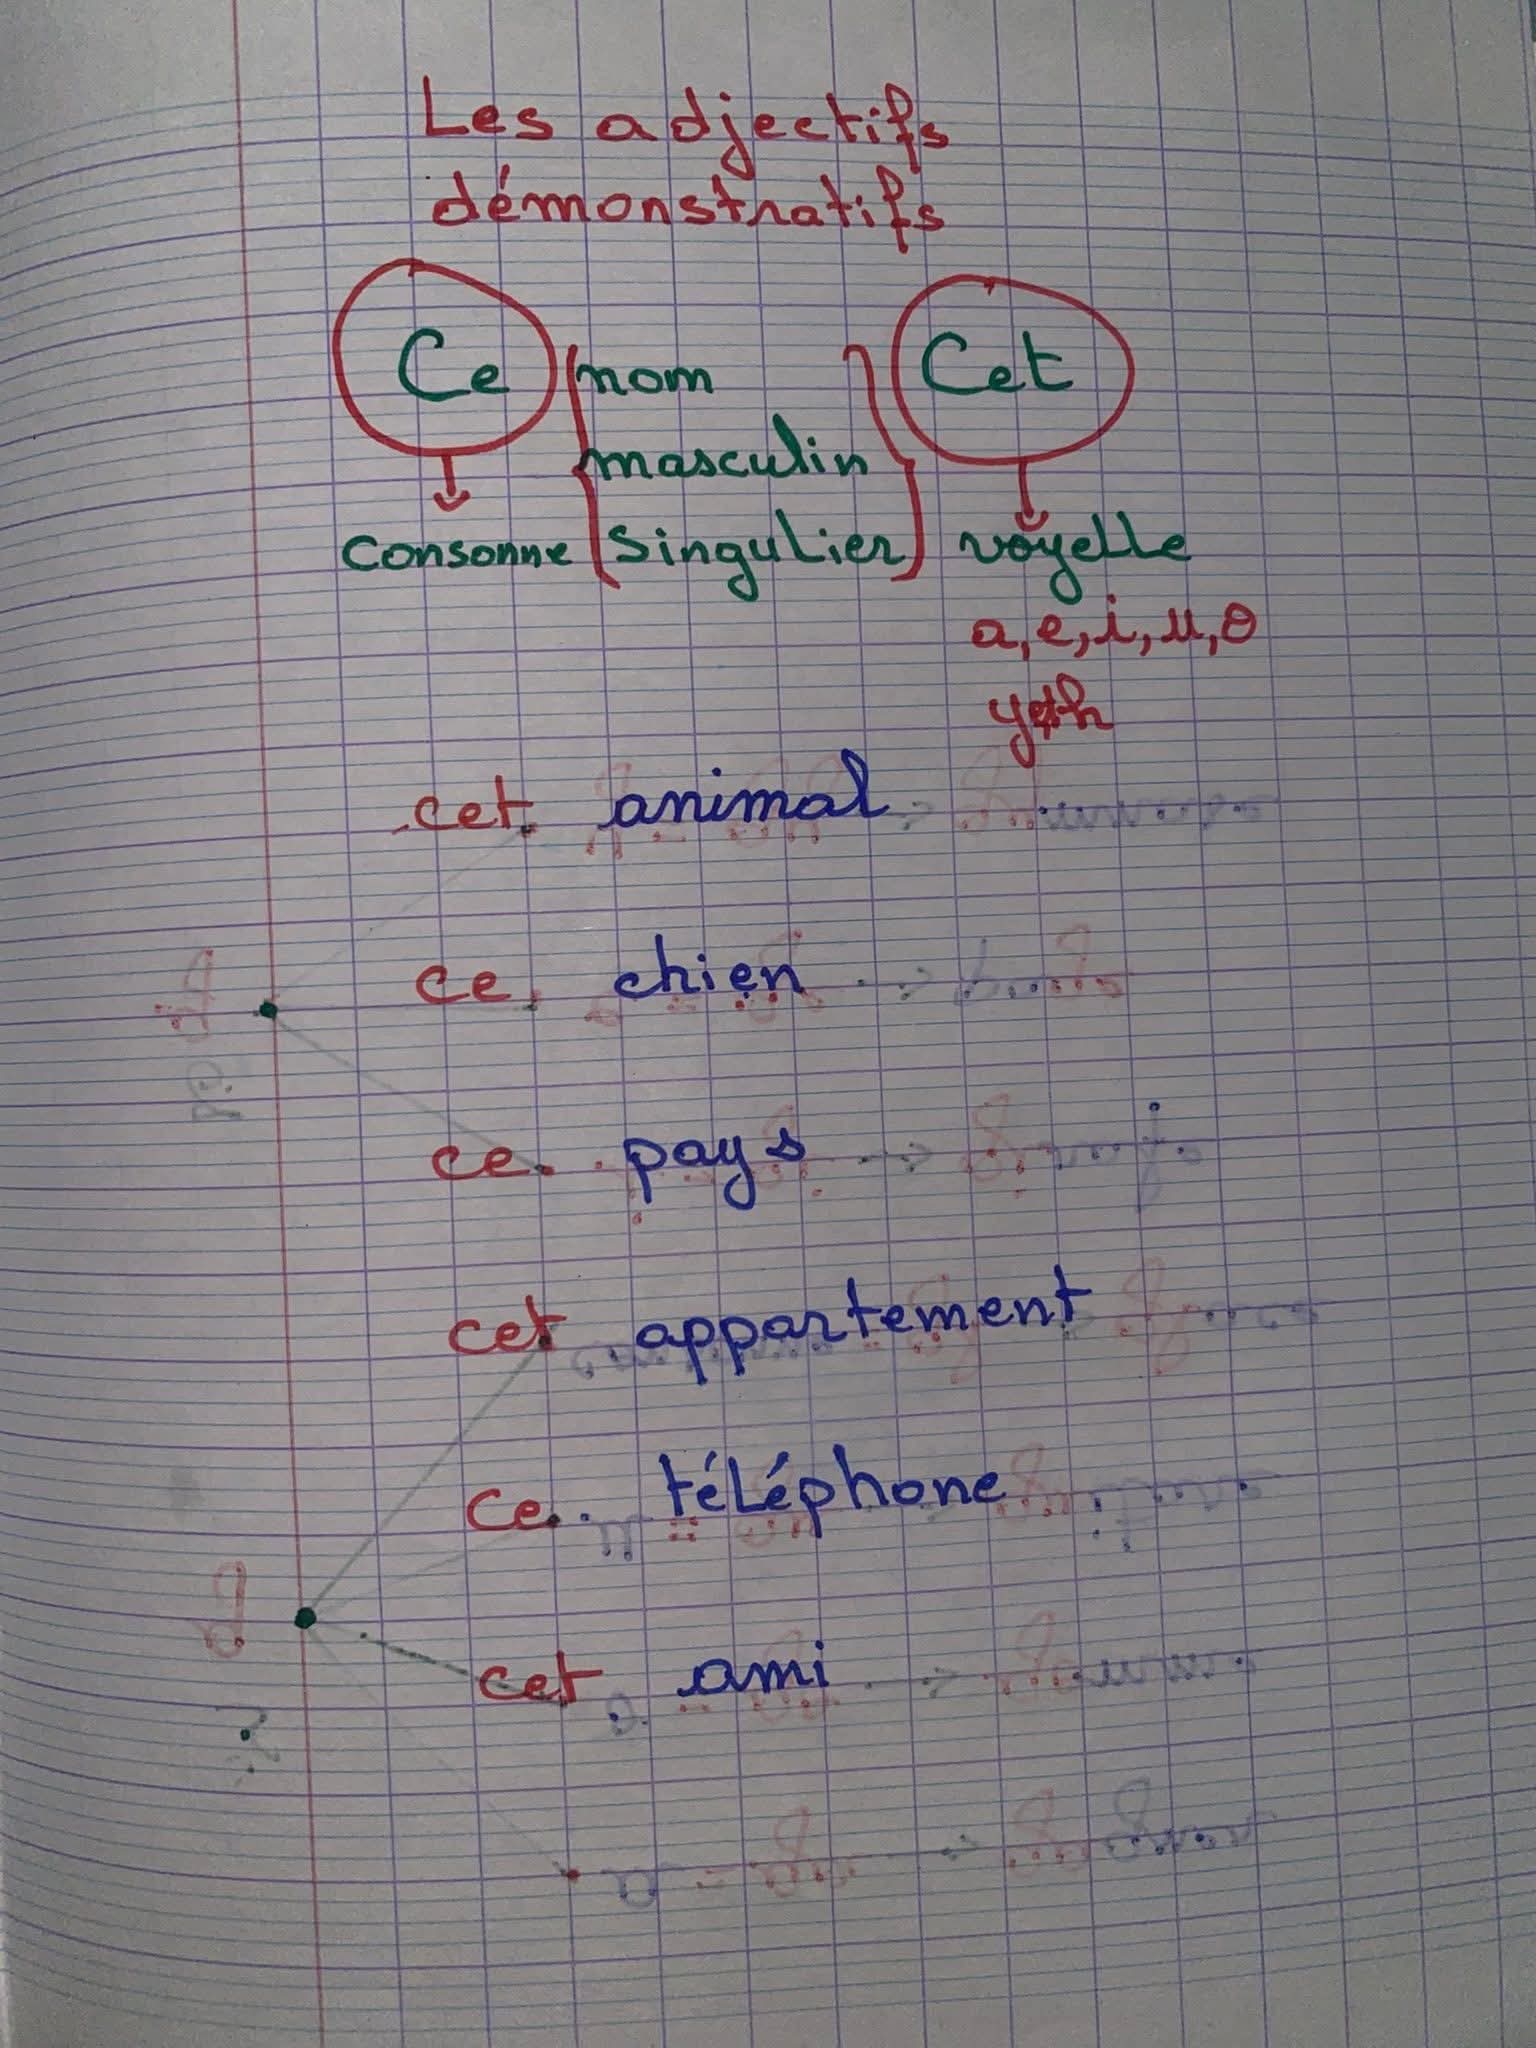 Les adjectifs
démonstratifs
Ce nom Cet
masculin
consonne singulier voyelle
a, e, i, u, o
y et h
cet animal
ce chien
ce pays
cet appartement
ce téléphone
cet ami